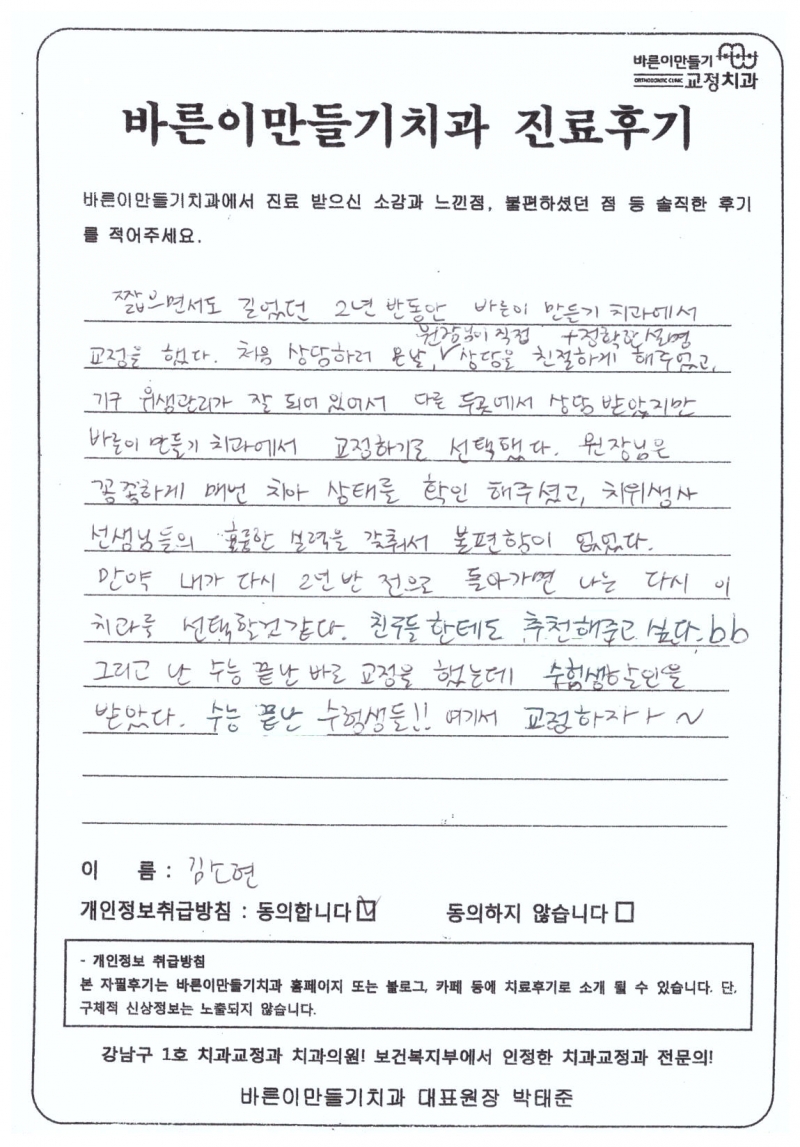 바른이만들기
ORTHODONTIC CLINIC 교정치과
바른이만들기치과 진료후기
바른이만들기치과에서 진료 받으신 소감과 느낀점, 불편하셨던 점 등 솔직한 후기
를 적어주세요.
짧으면서도 길었던 2년 반동안 바른이 만들기 치과에서
원장님이 직접 +전학한 설명
교정을 했다. 처음 상담하러 온날, ∨상담을 친절하게 해주었고,
기구 위생관리가 잘 되어 있어서 다른 두곳에서 상담 받았지만
바른이 만들기 치과에서 교정하기로 선택했다. 원장님은
꼼꼼하게 매번 치아 상태를 확인 해주셨고, 치위생사
선생님들의 훌륭한 실력을 갖춰서 불편함이 없었다.
만약 내가 다시 2년 반 전으로 돌아가면 나는 다시 이
치과를 선택할것 같다. 친구들 한테도 추천해주고 싶다.bb
그리고 난 수능 끝난 바로 교정을 했는데 수험생할인을
받았다. 수능 끝난 수험생들!! 여기서 교정하자ㅏ ~
이 름 : 김소현
개인정보취급방침 : 동의합니다 ☑ 동의하지 않습니다 □
- 개인정보 취급방침
본 자필후기는 바른이만들기치과 홈페이지 또는 블로그, 카페 등에 치료후기로 소개 될 수 있습니다. 단,
구체적 신상정보는 노출되지 않습니다.
강남구 1호 치과교정과 치과의원! 보건복지부에서 인정한 치과교정과 전문의!
바른이만들기치과 대표원장 박태준